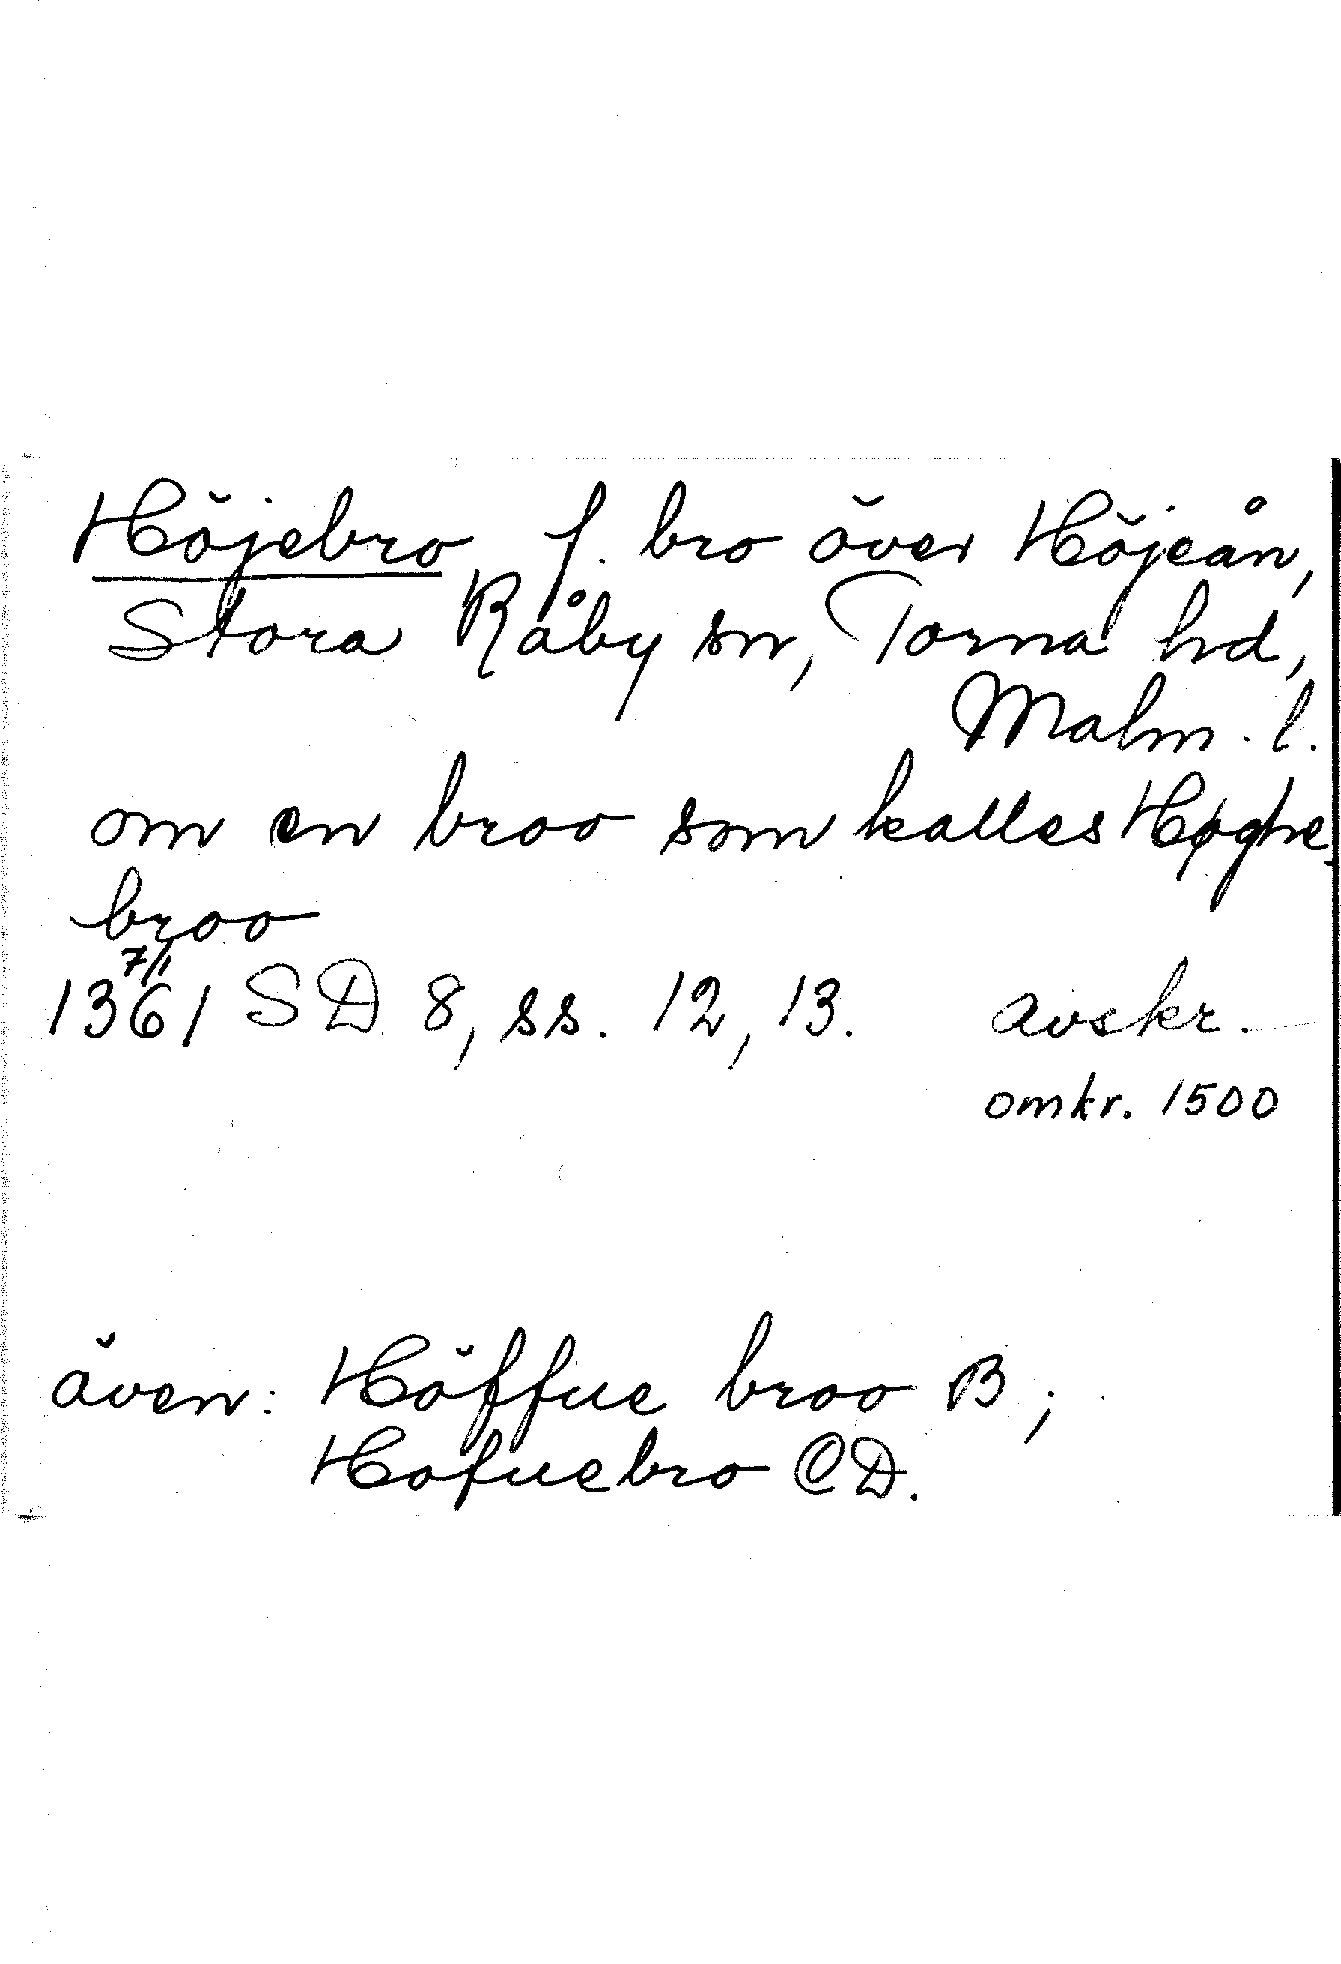 Höjebro f. bro över Höjeån,
Stora Råby sn, Torna hd,
Malm. l.
om en broo som kalles Høghe-
broo
1361 7/1 SD 8, ss. 12, 13. avskr.
omkr. 1500
även: Höffue broo B;
Hofuebro CD.